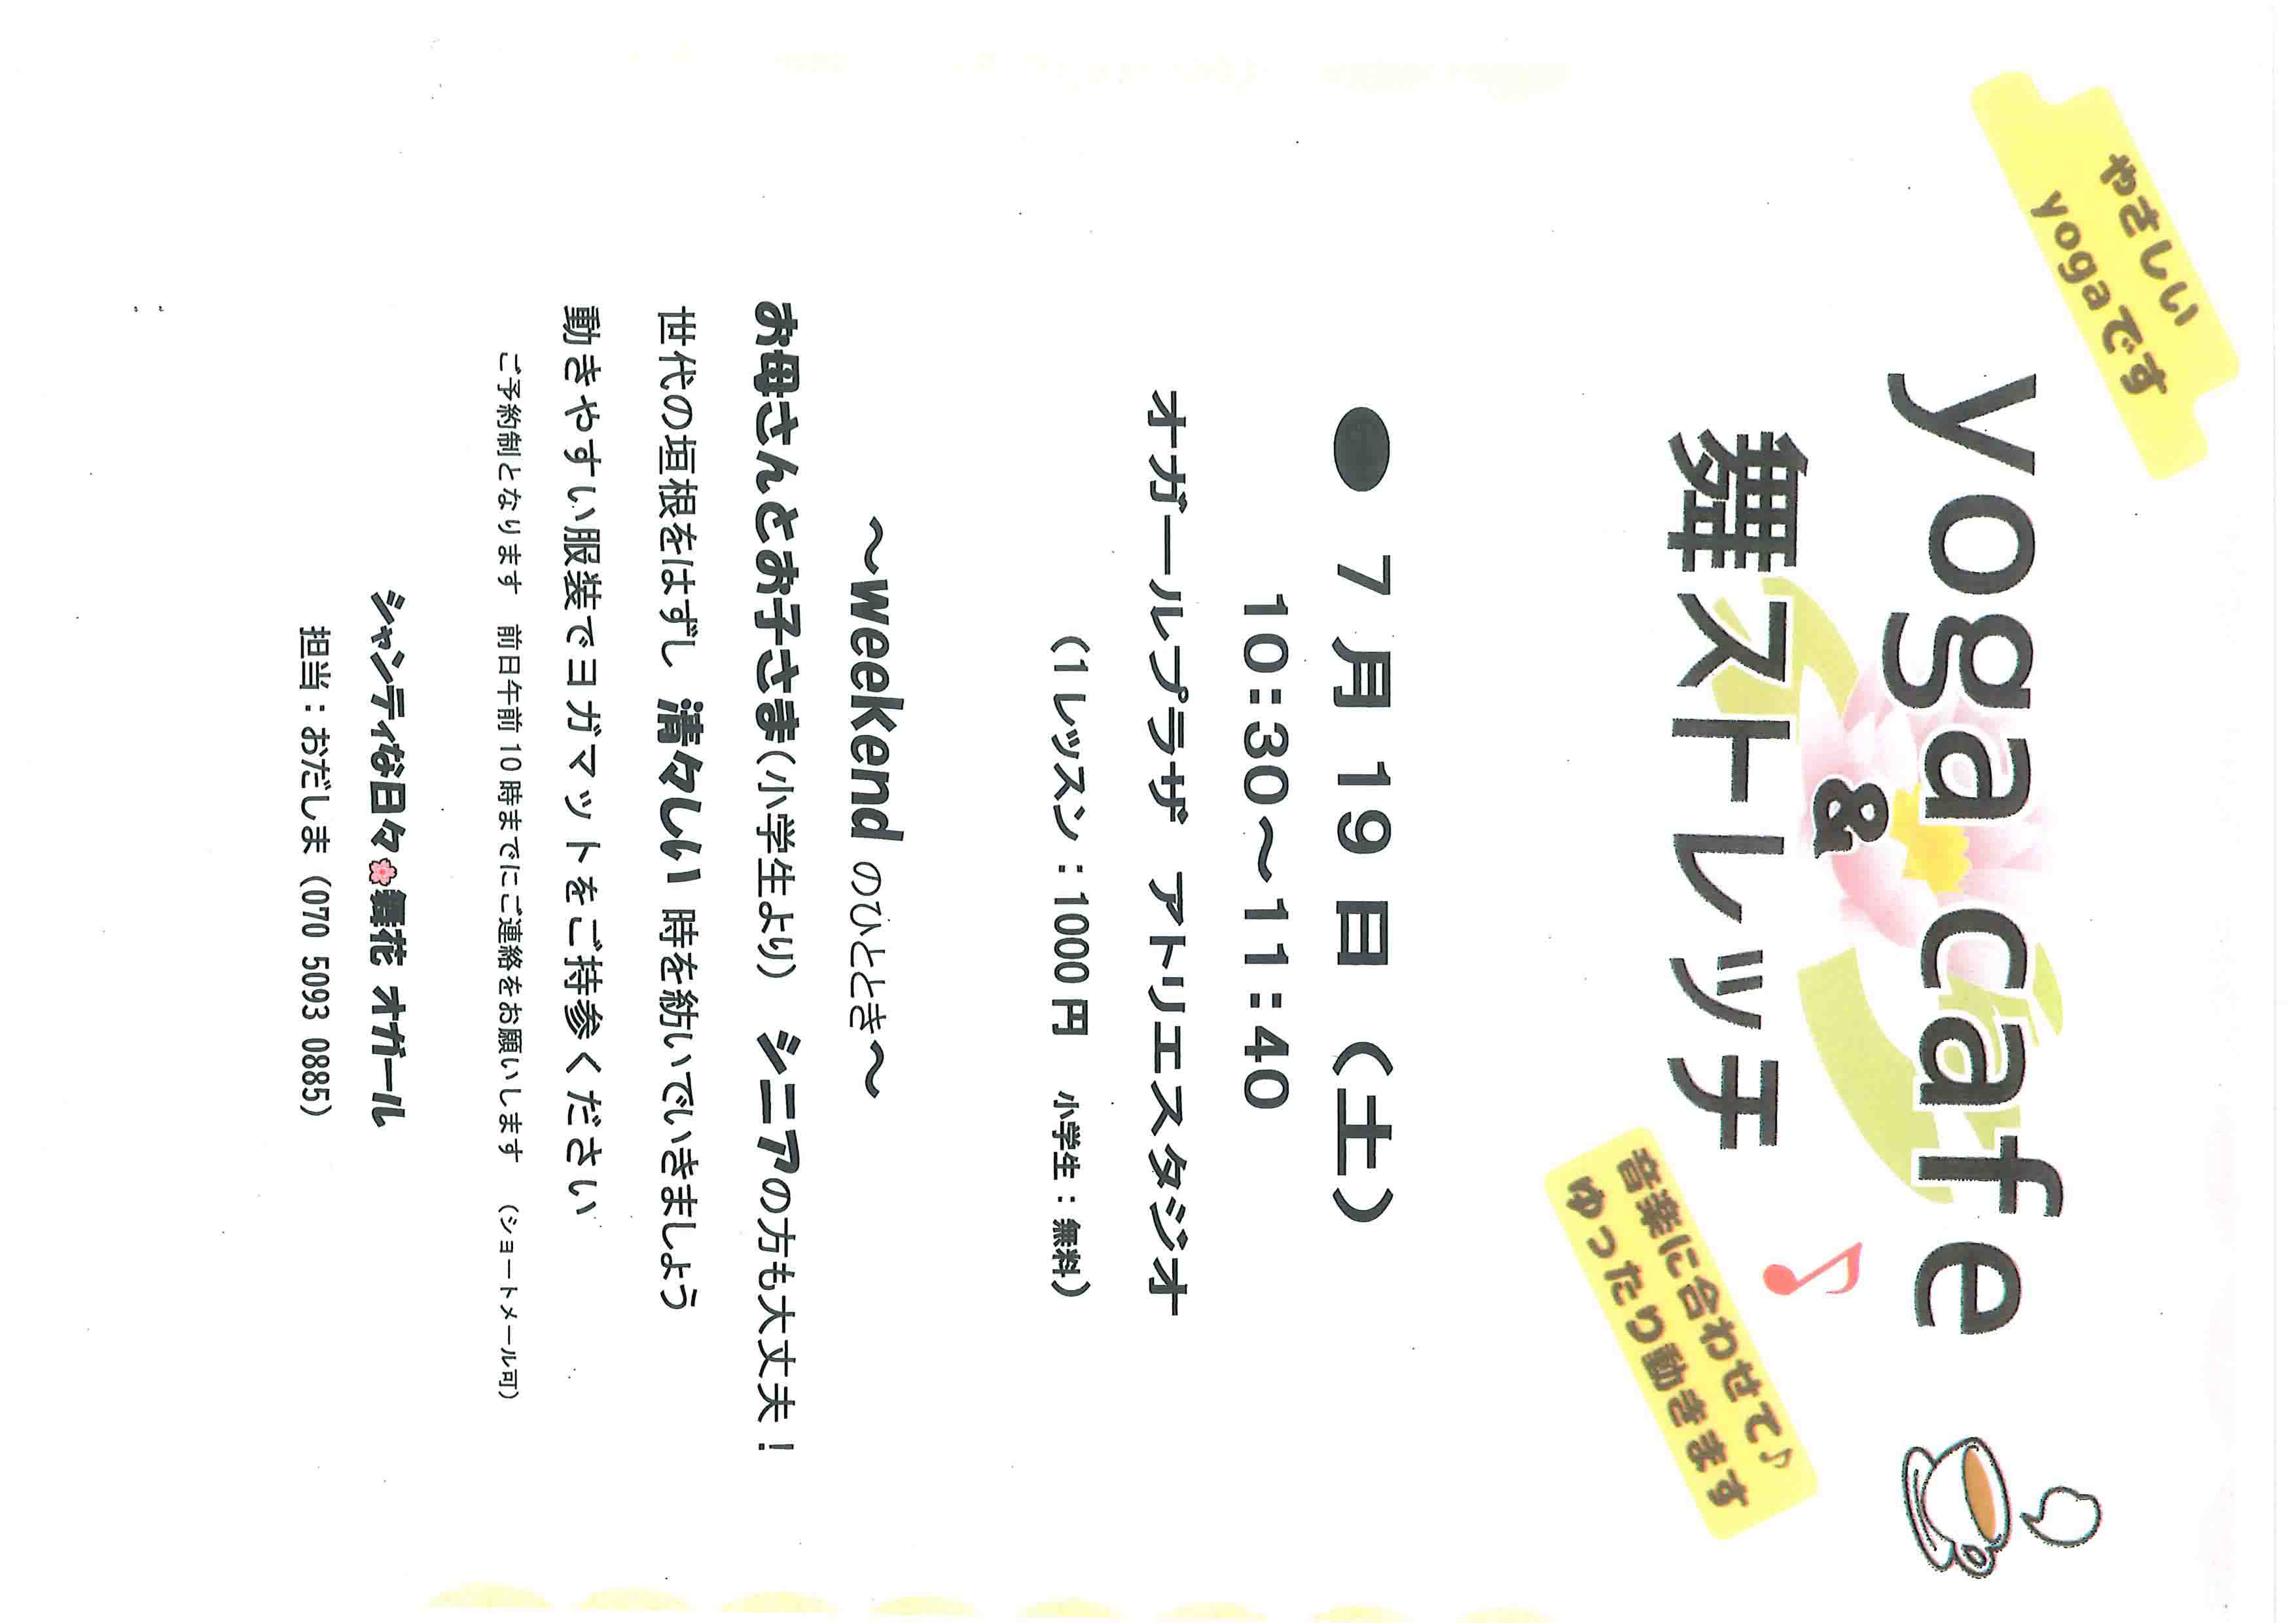 やさしい
yogaです
yoga cafe
&
舞ストレッチ
音楽に合わせて♪
ゆったり動きます
● 7月19日（土）
10：30～11：40
オガールプラザ　アトリエスタジオ
（1レッスン：1000円　小学生：無料）
～weekendのひととき～
お母さんとお子さま(小学生より)　シニアの方も大丈夫！
世代の垣根をはずし 清々しい 時を紡いでいきましょう
動きやすい服装でヨガマットをご持参ください
ご予約制となります　前日午前10時までにご連絡をお願いします　（ショートメール可）
シャンティな日々🌸舞花 オガール
担当：おだしま（070 5093 0885）